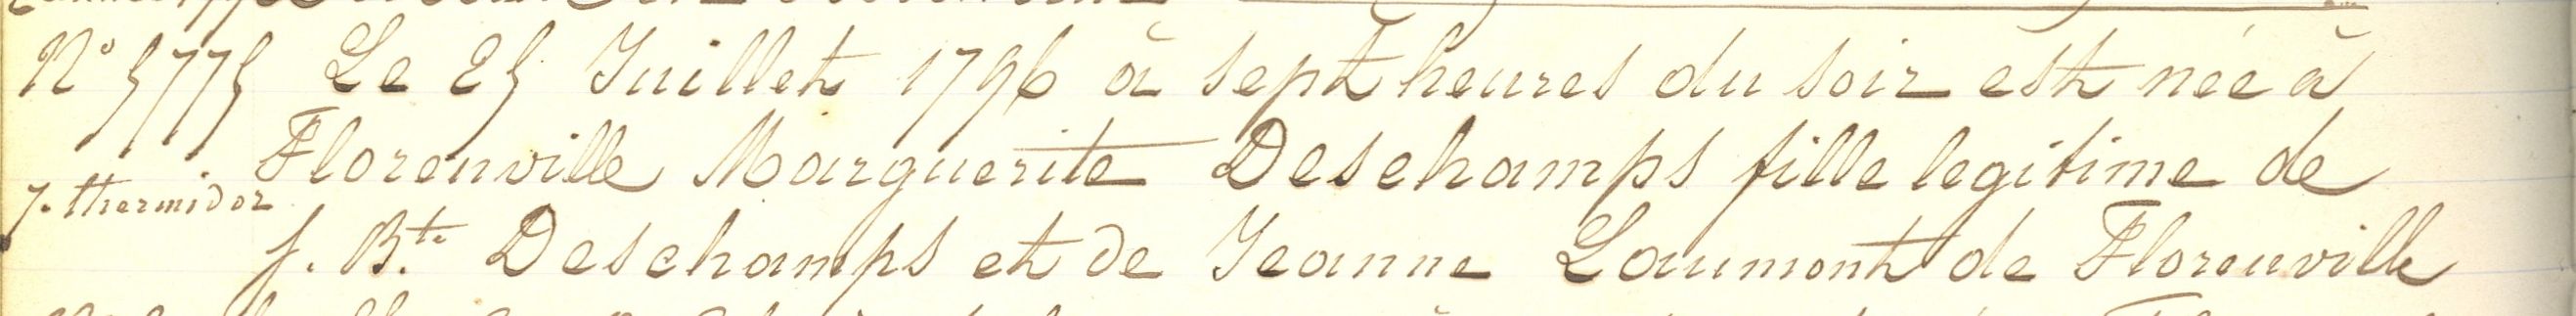 N° 5775 Le 25 Juillet 1796 à sept heures du soir est née à
Florenville Marguerite Deschamps fille legitime de
7. thermidor
J. Bte Deschamps et de Jeanne Laumont de Florenville